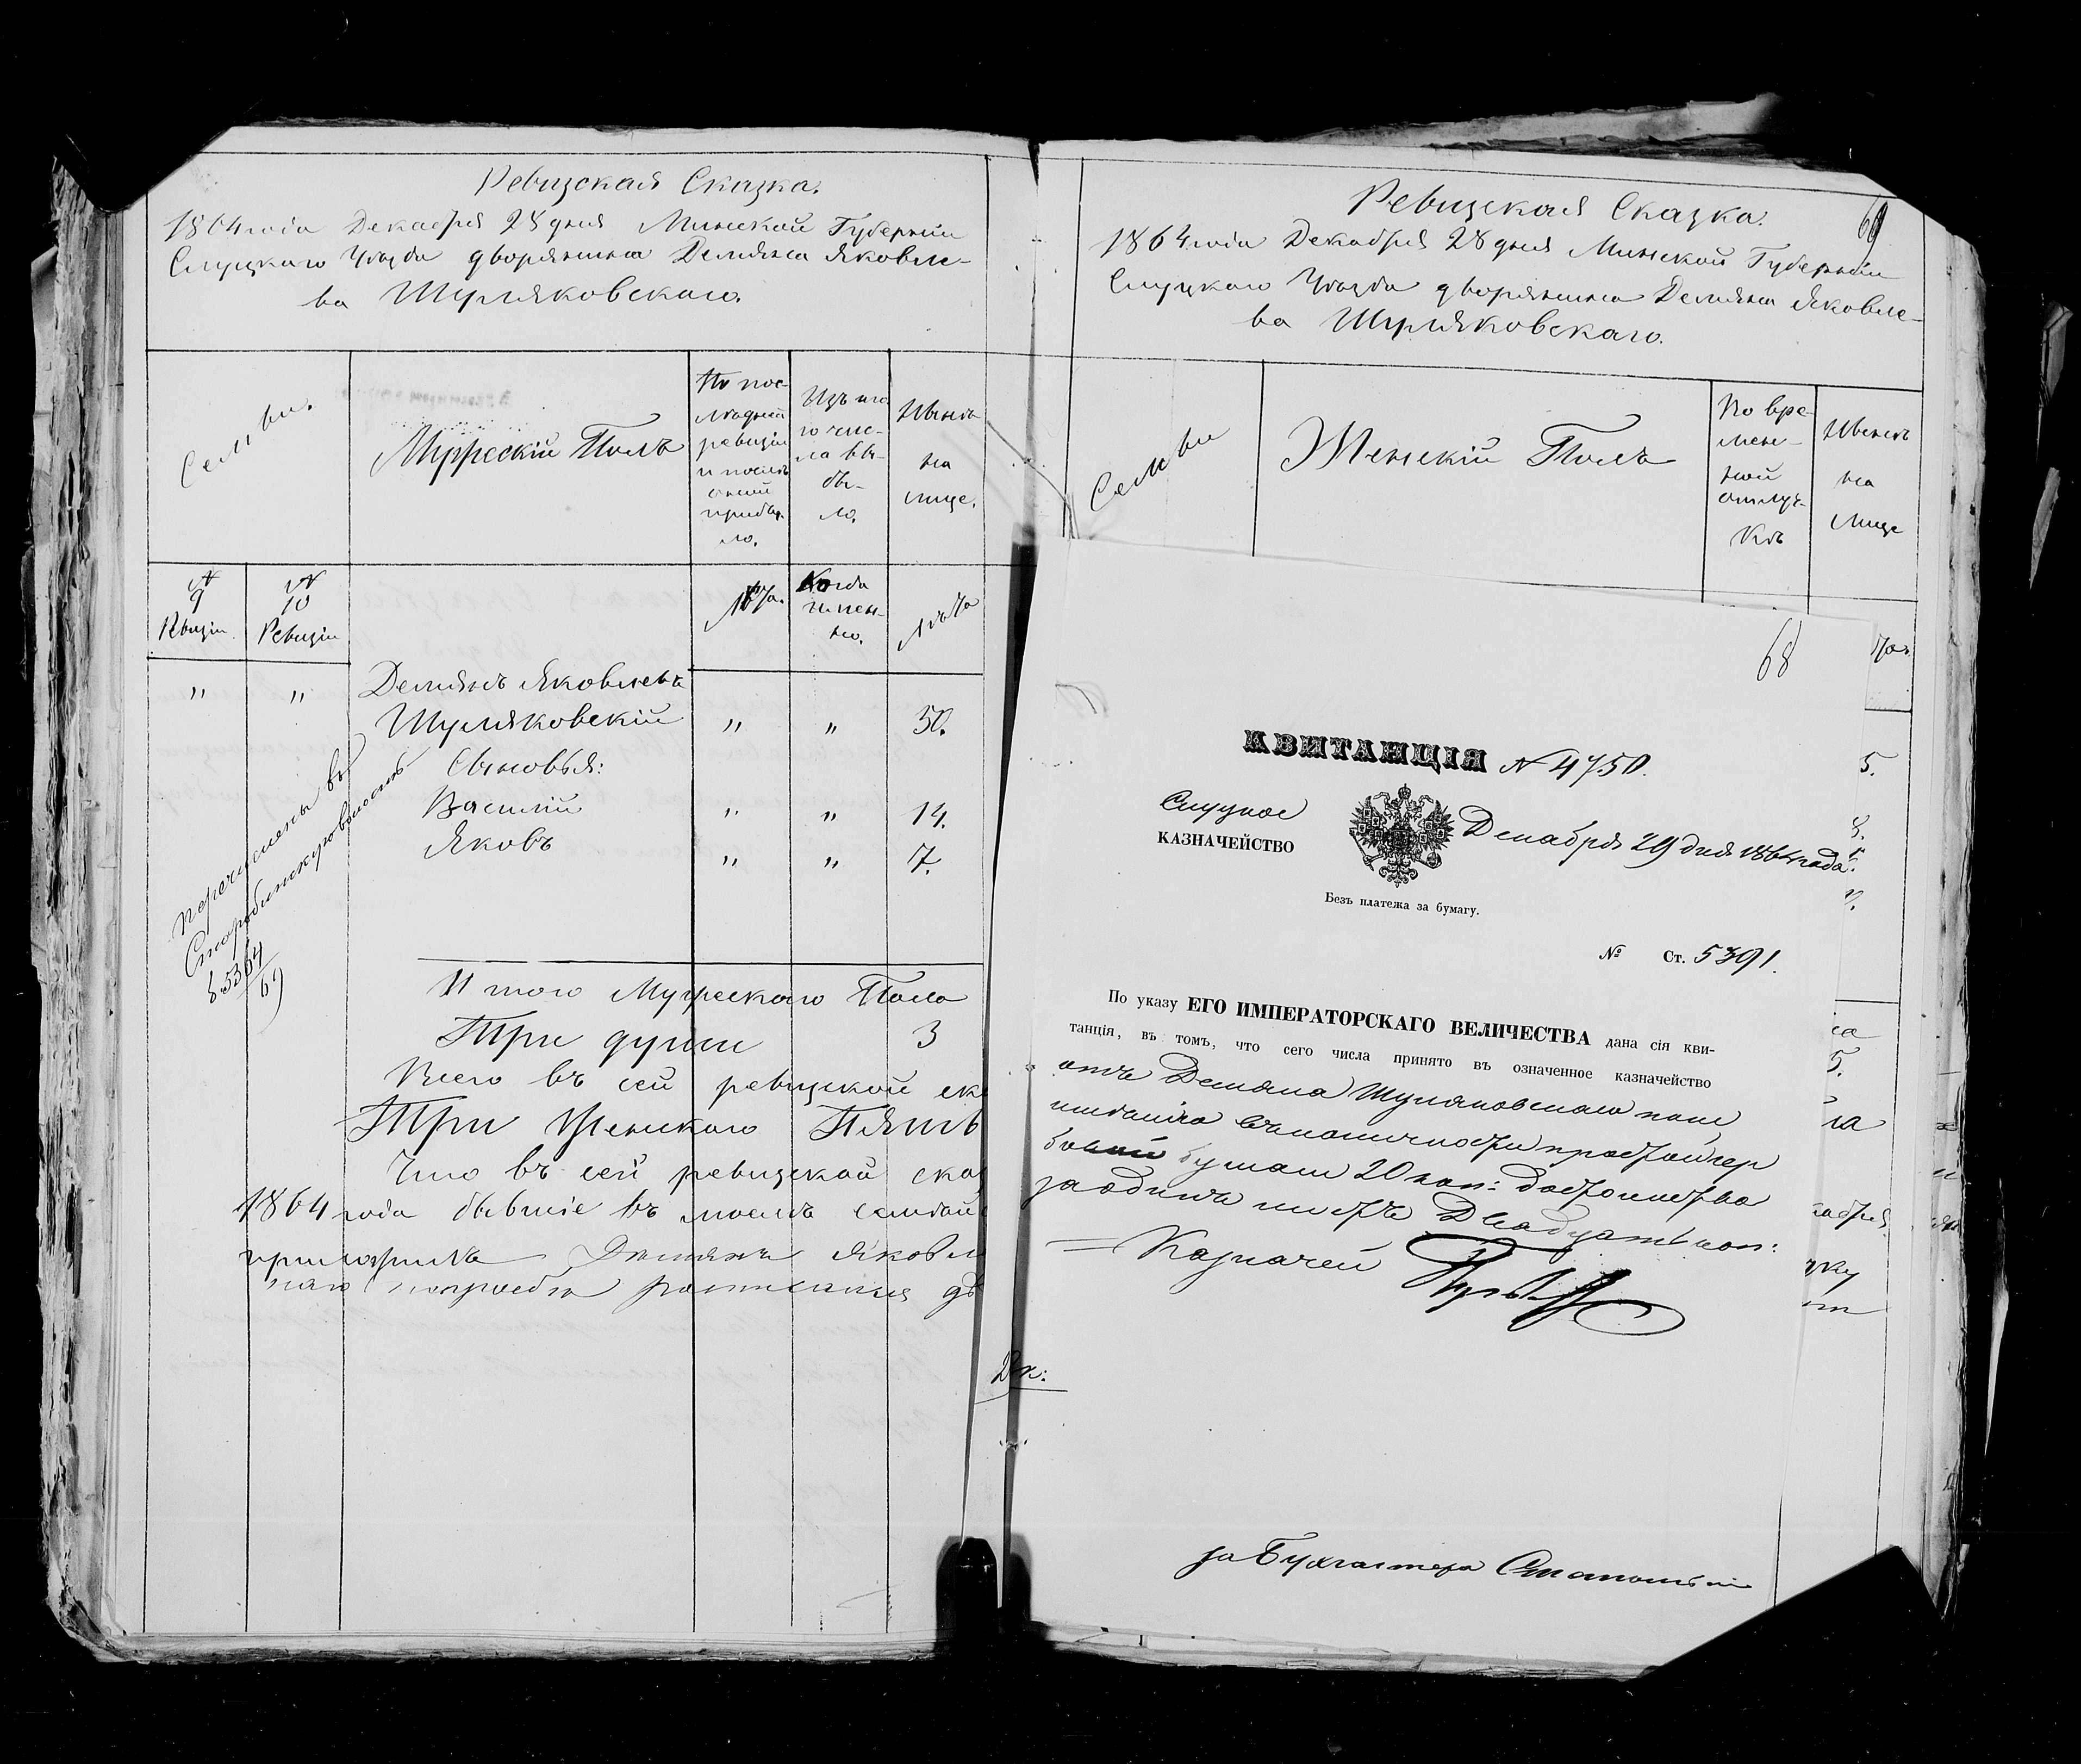 Ревизская Сказка.
1864 года Декабря 28 дня Минской Губерніи
Слуцкаго Уѣзда дворянина Демьяна Яковле-
ва Шуляковскаго.
Семьи.
Мужескій Полъ
По пос-
лѣдней
ревизіи
и послѣ
оной
прибы-
ло.
Изъ то
го чис-
ла вы-
бы-
ло.
Нынѣ
на
лице.
№
9
Ревизіи
№
10
Ревизіи
Лѣта.
Когда
имен-
но.
Лѣта
" " Демьянъ Яковлевъ
Шуляковскій " " 50.
Сыновья:
Василій " " 14.
Яковъ " " 7.
перечислены въ
Старобинскую волость
6.5364
69
Итого Мужескаго Пола
Три души 3
Всего въ сей ревизской ска
Три Женскаго Пять
Что въ сей ревизской сказ
1864 года бывшіе въ моемъ семей
Демьянъ Яковл
Ревизская Сказка.
69
1864 года Декабря 28 дня Минской Губерніи
Слуцкаго Уѣзда дворянина Демьяна Яковле-
ва Шуляковскаго.
Семьи
Женскій Полъ
По вре-
мен-
ной
отлуч-
кѣ
Нынѣ
на
лице
68
КВИТАНЦІЯ № 4750.
Слуцкое
КАЗНАЧЕЙСТВО
Декабря 29 дня 1864 года.
Безъ платежа за бумагу.
№ Ст. 5391.
По указу ЕГО ИМПЕРАТОРСКАГО ВЕЛИЧЕСТВА дана сія кви-
танція, въ томъ, что сего числа принято въ означенное казначейство
отъ Демьяна Шуляковскаго
простой гер
бовой бумаги 20 коп: достоинства
за одинъ листъ Двадцать коп:
Казначей
за Бухгалтера